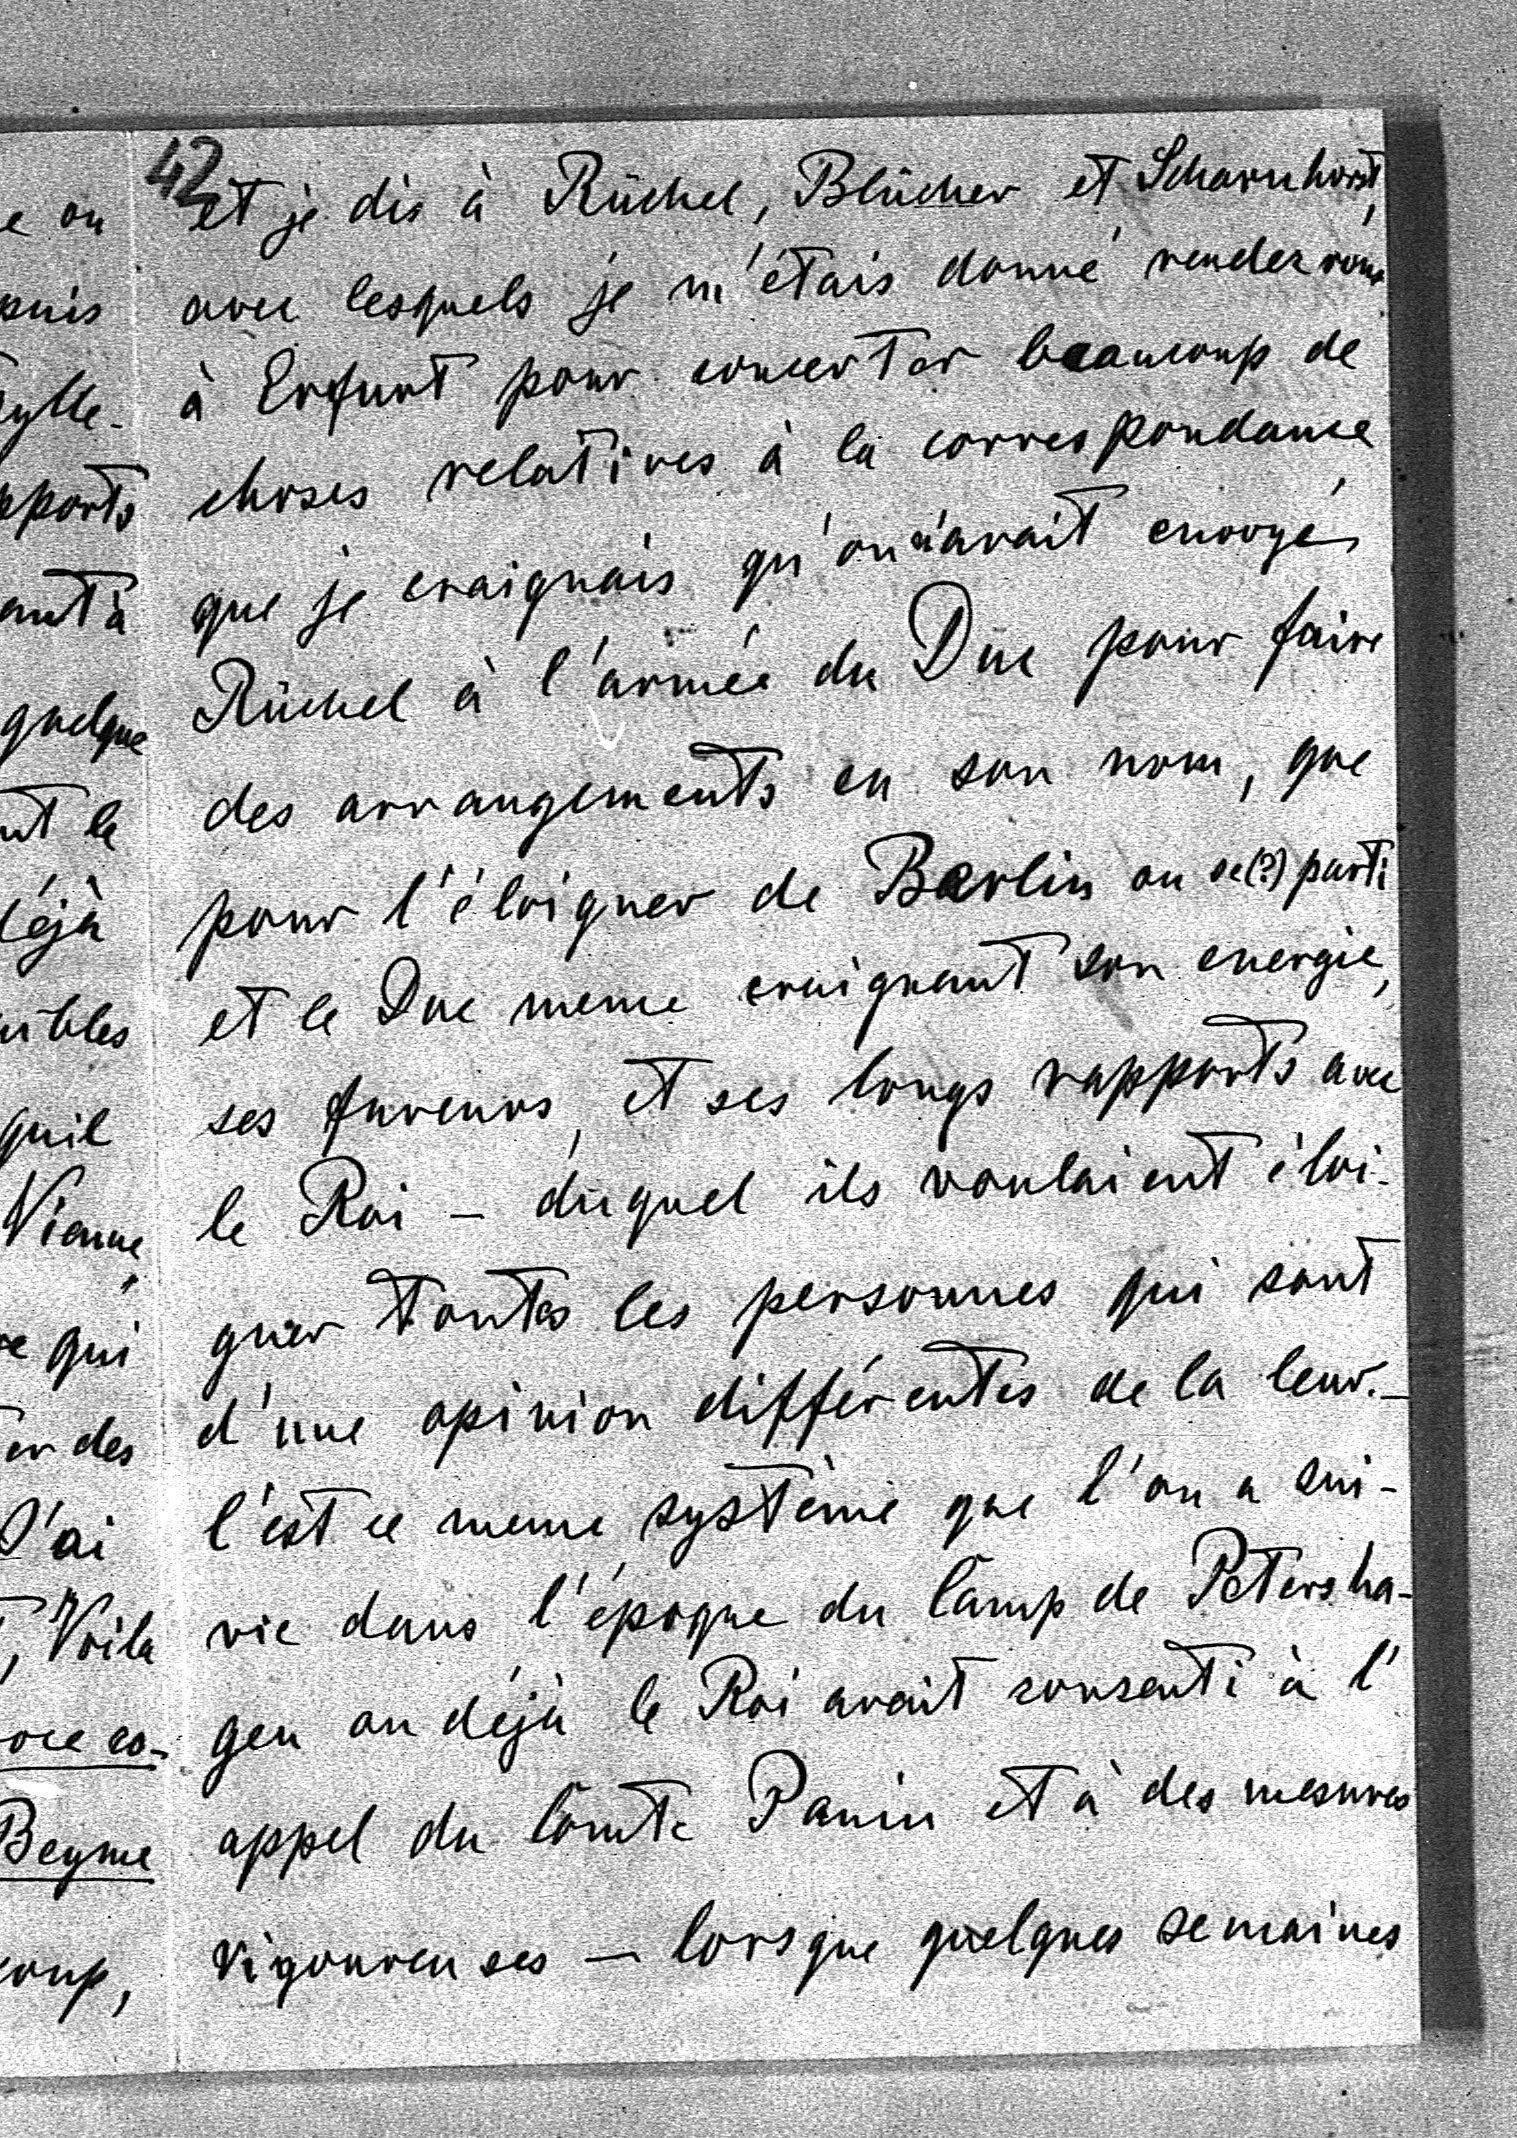 42
et je dis à Rüchel, Blücher et Scharnhorst,
avec lesquels je m'étais donné rendez vous
à Erfurt pour concerter beaucoup de
choses relatives à la correspondance
que je craignais qu'on n'avait envoyé
Rüchel à l'armée du Duc pour faire
des arrangements en son nom, que
pour l'éloigner de Berlin ou se(?) parti
et le Duc meme craignant son energie,
ses fureurs, et ses longs rapports avec
le Roi – duquel ils voulaient éloi-
gner toutes les personnes qui sont
d'une opinion différentes de la leur. –
C'est ce meme système que l'on a sui-
vie dans l'époque du Camp de Petersha-
gen ou déjà le Roi avait consenti à l'
appel du Comte Panin et à des mesures
vigoureuses – lorsque quelques semaines
e on
puis
pports
ant à
quelque
nt le
déjà
quil
Vienne,
e qui
er des
J'ai
, Voila
oce co-
Beyme
coup,